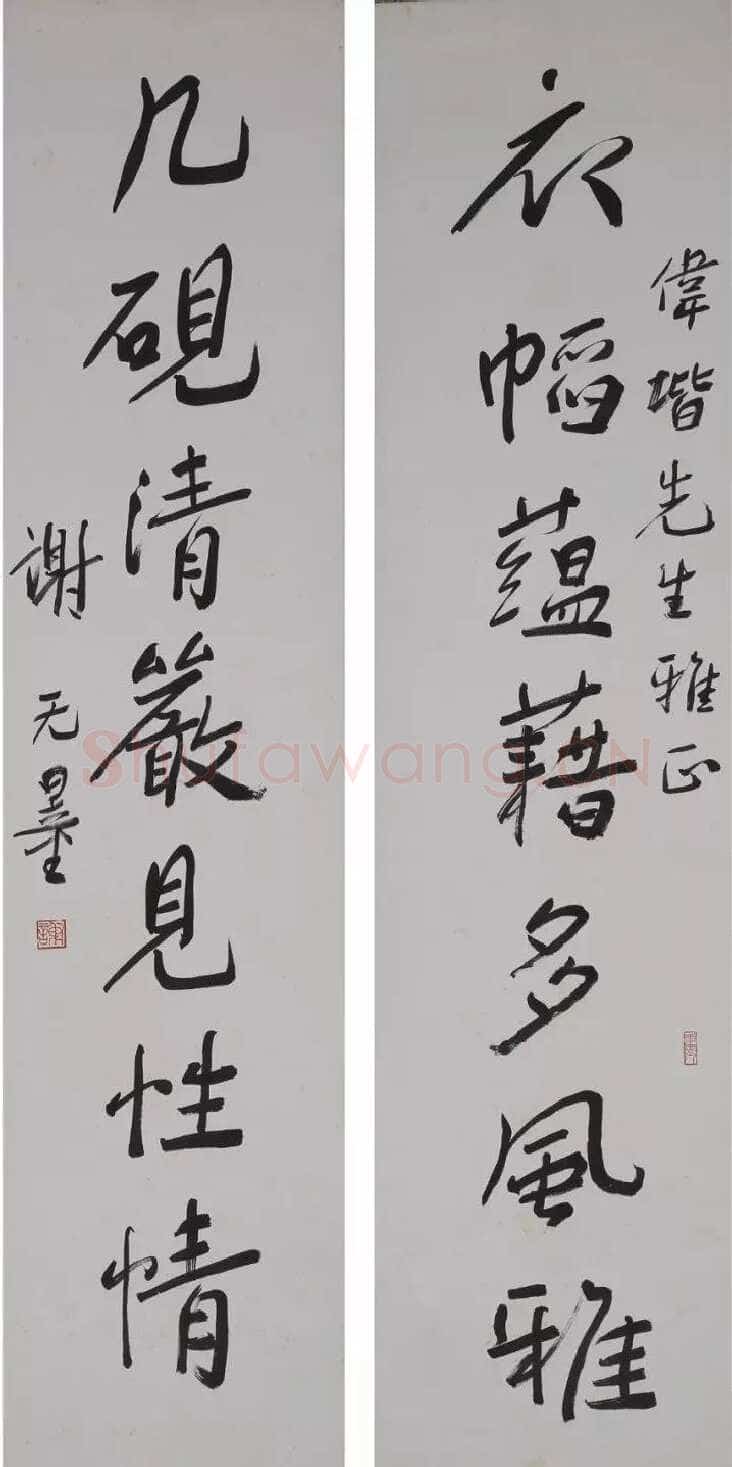 衣幅蘊藉多風雅
偉堦先生雅正
几硯清嚴見性情
謝无量
Shufawang.CN